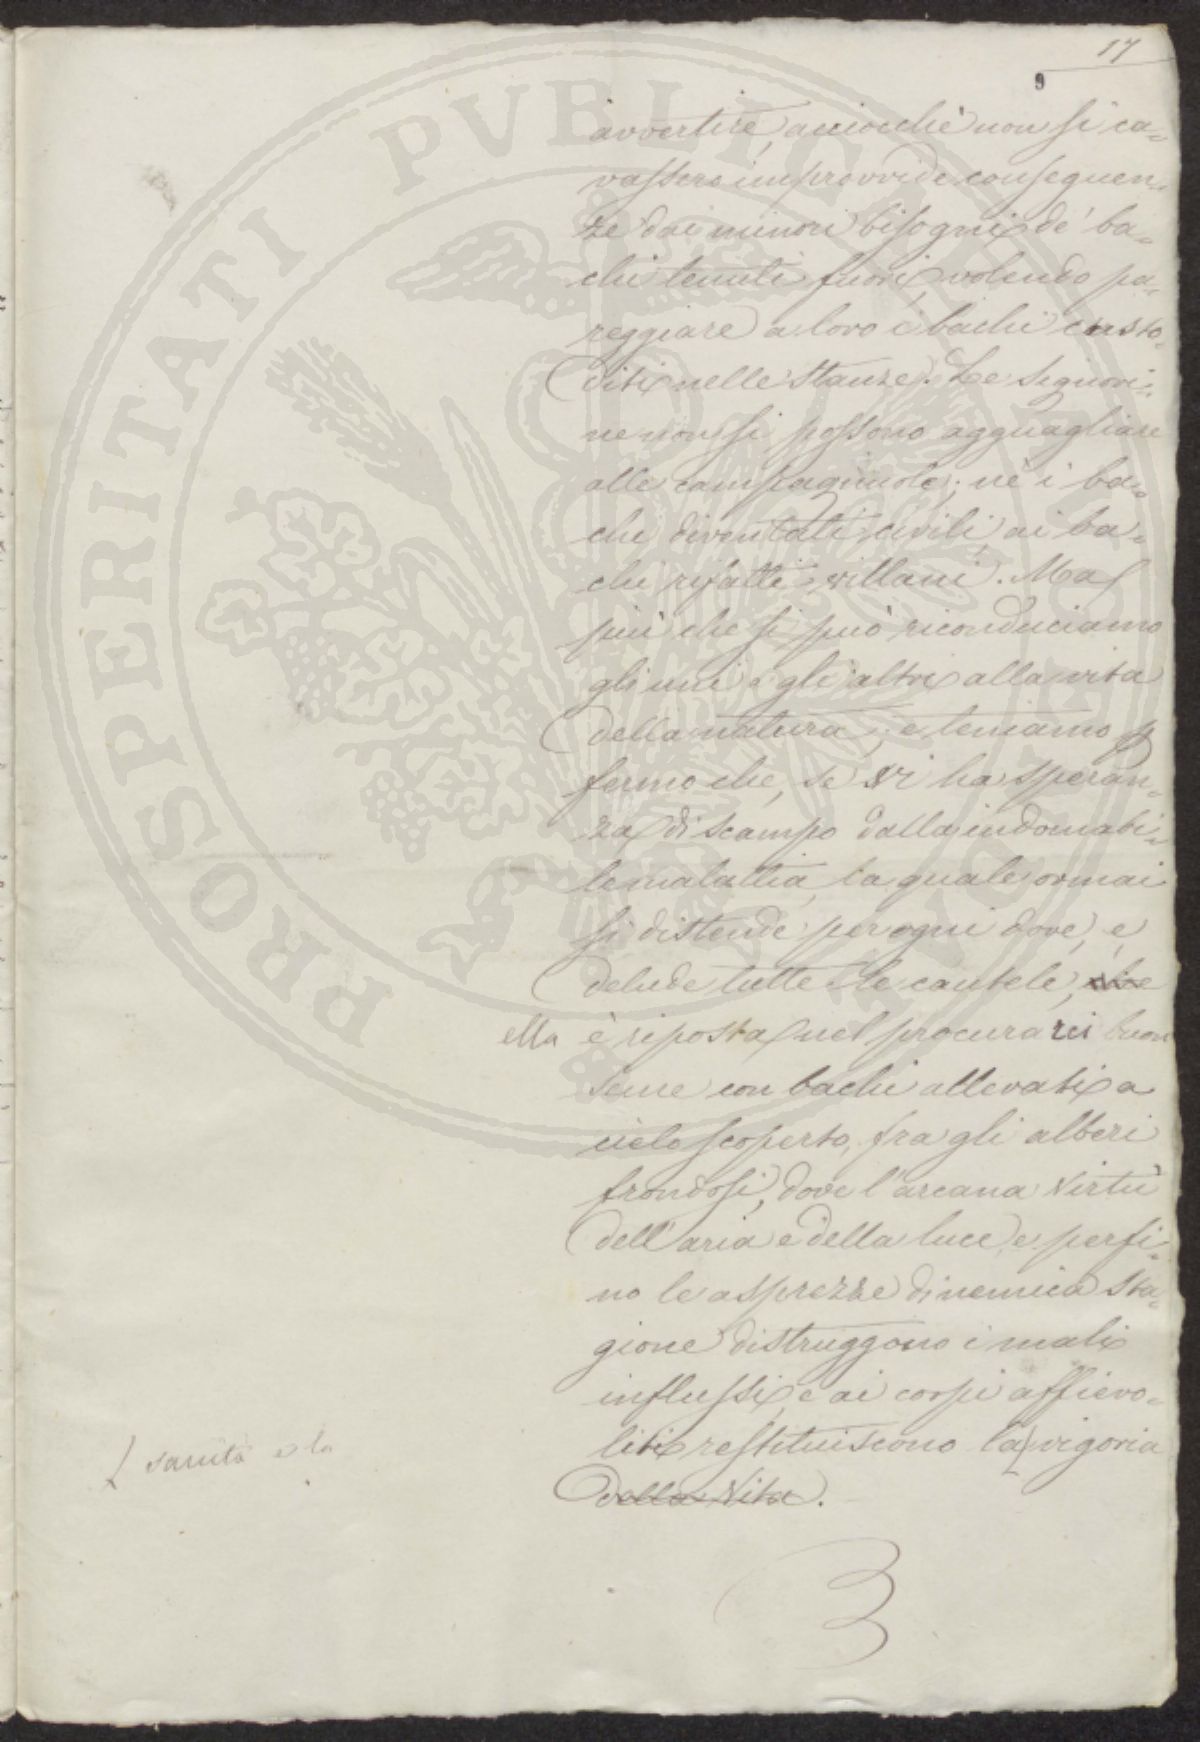 17
9
avvertire, acciocchè non si ca-
vassero improvvide conseguen-
ze dai minori bisogni de' ba-
chi tenuti fuori, volendo pa-
reggiare a loro i bachi custo-
diti nelle stanze. Le signori-
ne non si possono agguagliare
alle campagnuole; nè i ba-
chi diventati civili, ai ba-
chi rifatti villani. Ma
più che si può riconduciamo
gli uni e gli altri alla vita
della natura; e teniamo p
fermo che, se vi ha speran-
za di scampo dalla indomabi-
le malattia, la quale ormai
si distende per ogni dove, e
delude tutte le cautele, che
ella è riposta nel procurarci buon
seme con bachi allevati a
cielo scoperto, fra gli alberi
frondosi, dove l'arcana virtù
dell'aria e della luce, e perfi-
no le asprezze di nemica sta-
gione distruggono i mali
influssi, e ai corpi affievo-
liti restituiscono la vigoria
sanità e la
della vita.
PROSPERITATI PVBLICAE